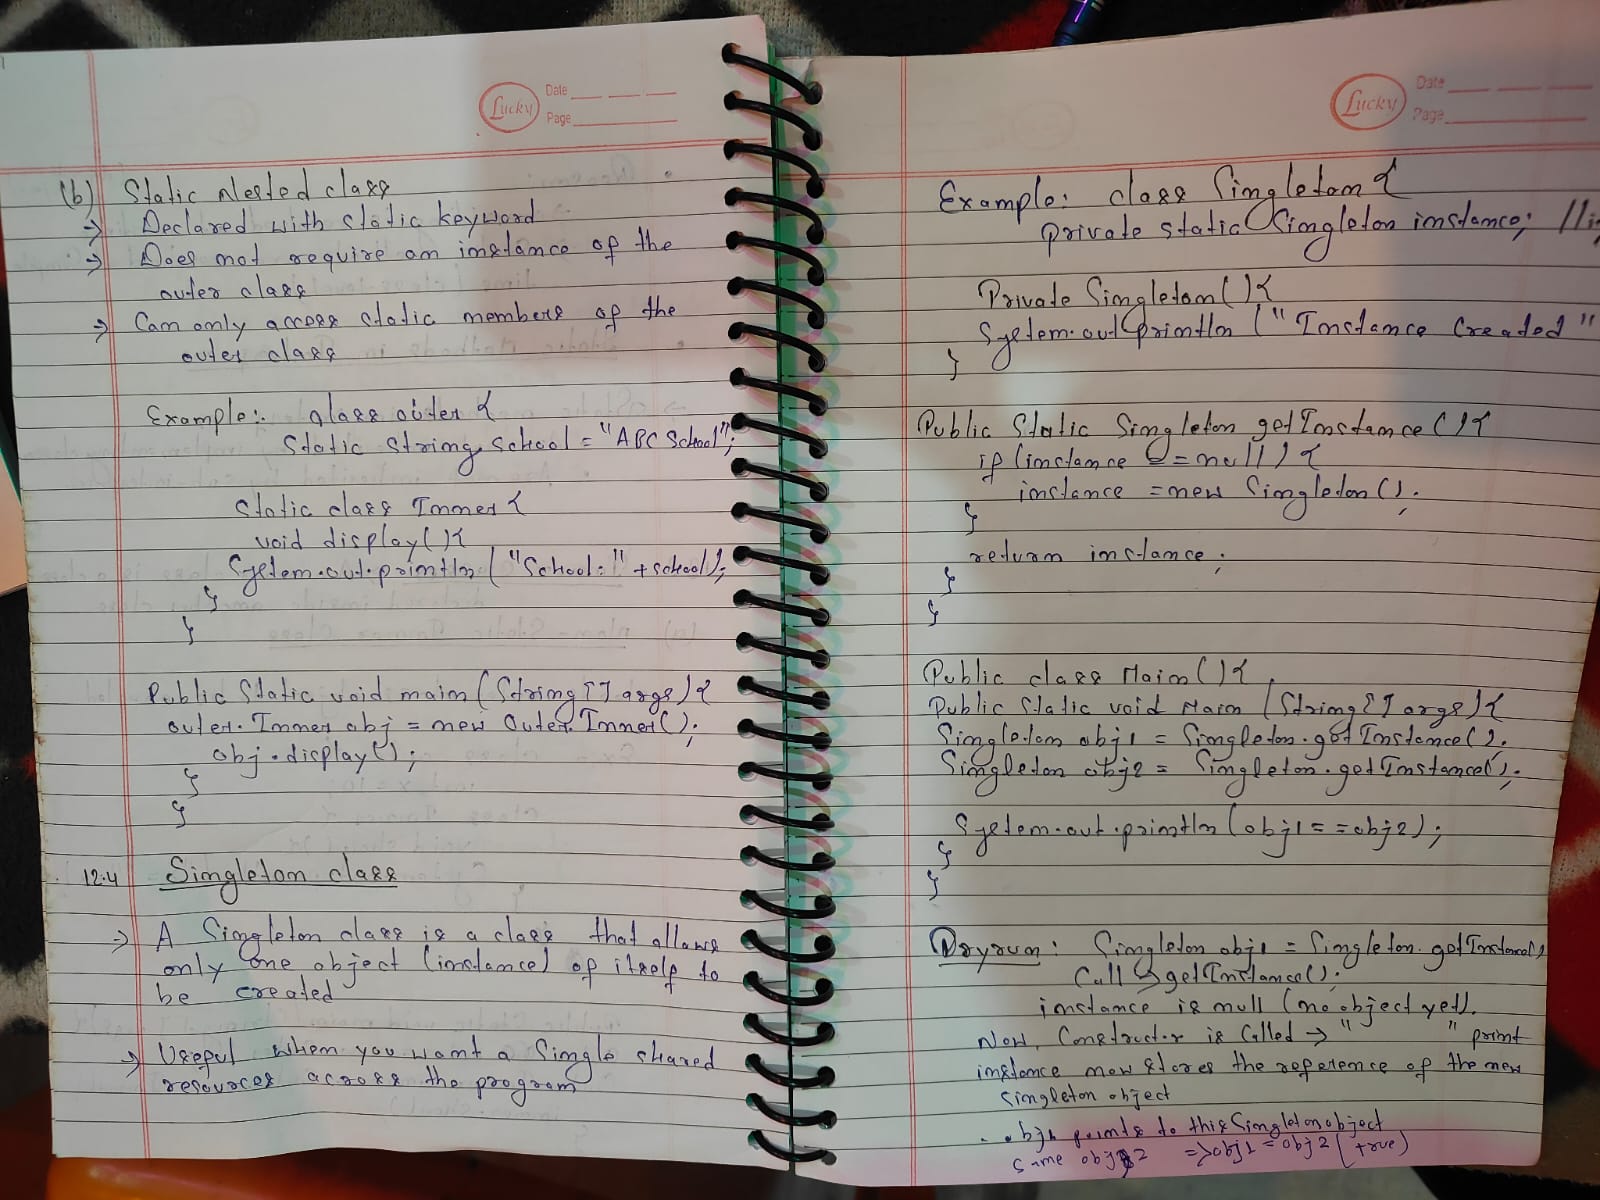 Lucky
Date
Page
(b) Static Nested class
→ Declared with static keyword
→ Does not require an instance of the
outer class
→ Can only access static members of the
outer class
Example:- class outer {
Static String School = "ABC School";
Static class Inner {
void display(){
System.out.println("School:" + school);
}
}
Public Static void main(String[] args){
outer.Inner obj = new Outer.Inner();
obj.display();
}
}
12.4 Singleton class
→ A Singleton class is a class that allows
only one object (instance) of itself to
be created
→ Useful when you want a Single shared
resources across the program
Lucky
Date
Page
Example: class Singleton {
private static Singleton instance; //
Private Singleton(){
System.out.println("Instance Created"
}
Public Static Singleton getInstance(){
if(instance == null){
instance = new Singleton();
}
return instance;
}
}
Public class Main(){
Public Static void Main(String[] args){
Singleton obj1 = Singleton.getInstance();
Singleton obj2 = Singleton.getInstance();
System.out.println(obj1 == obj2);
}
}
Dryrun: Singleton obj1 = Singleton.getInstance()
Call → getInstance();
instance is null (no object yet).
Now, Constructor is Called → " " print
instance now stores the reference of the new
Singleton object
obj1 points to this Singleton object
Same obj2 => obj1 = obj2 (true)